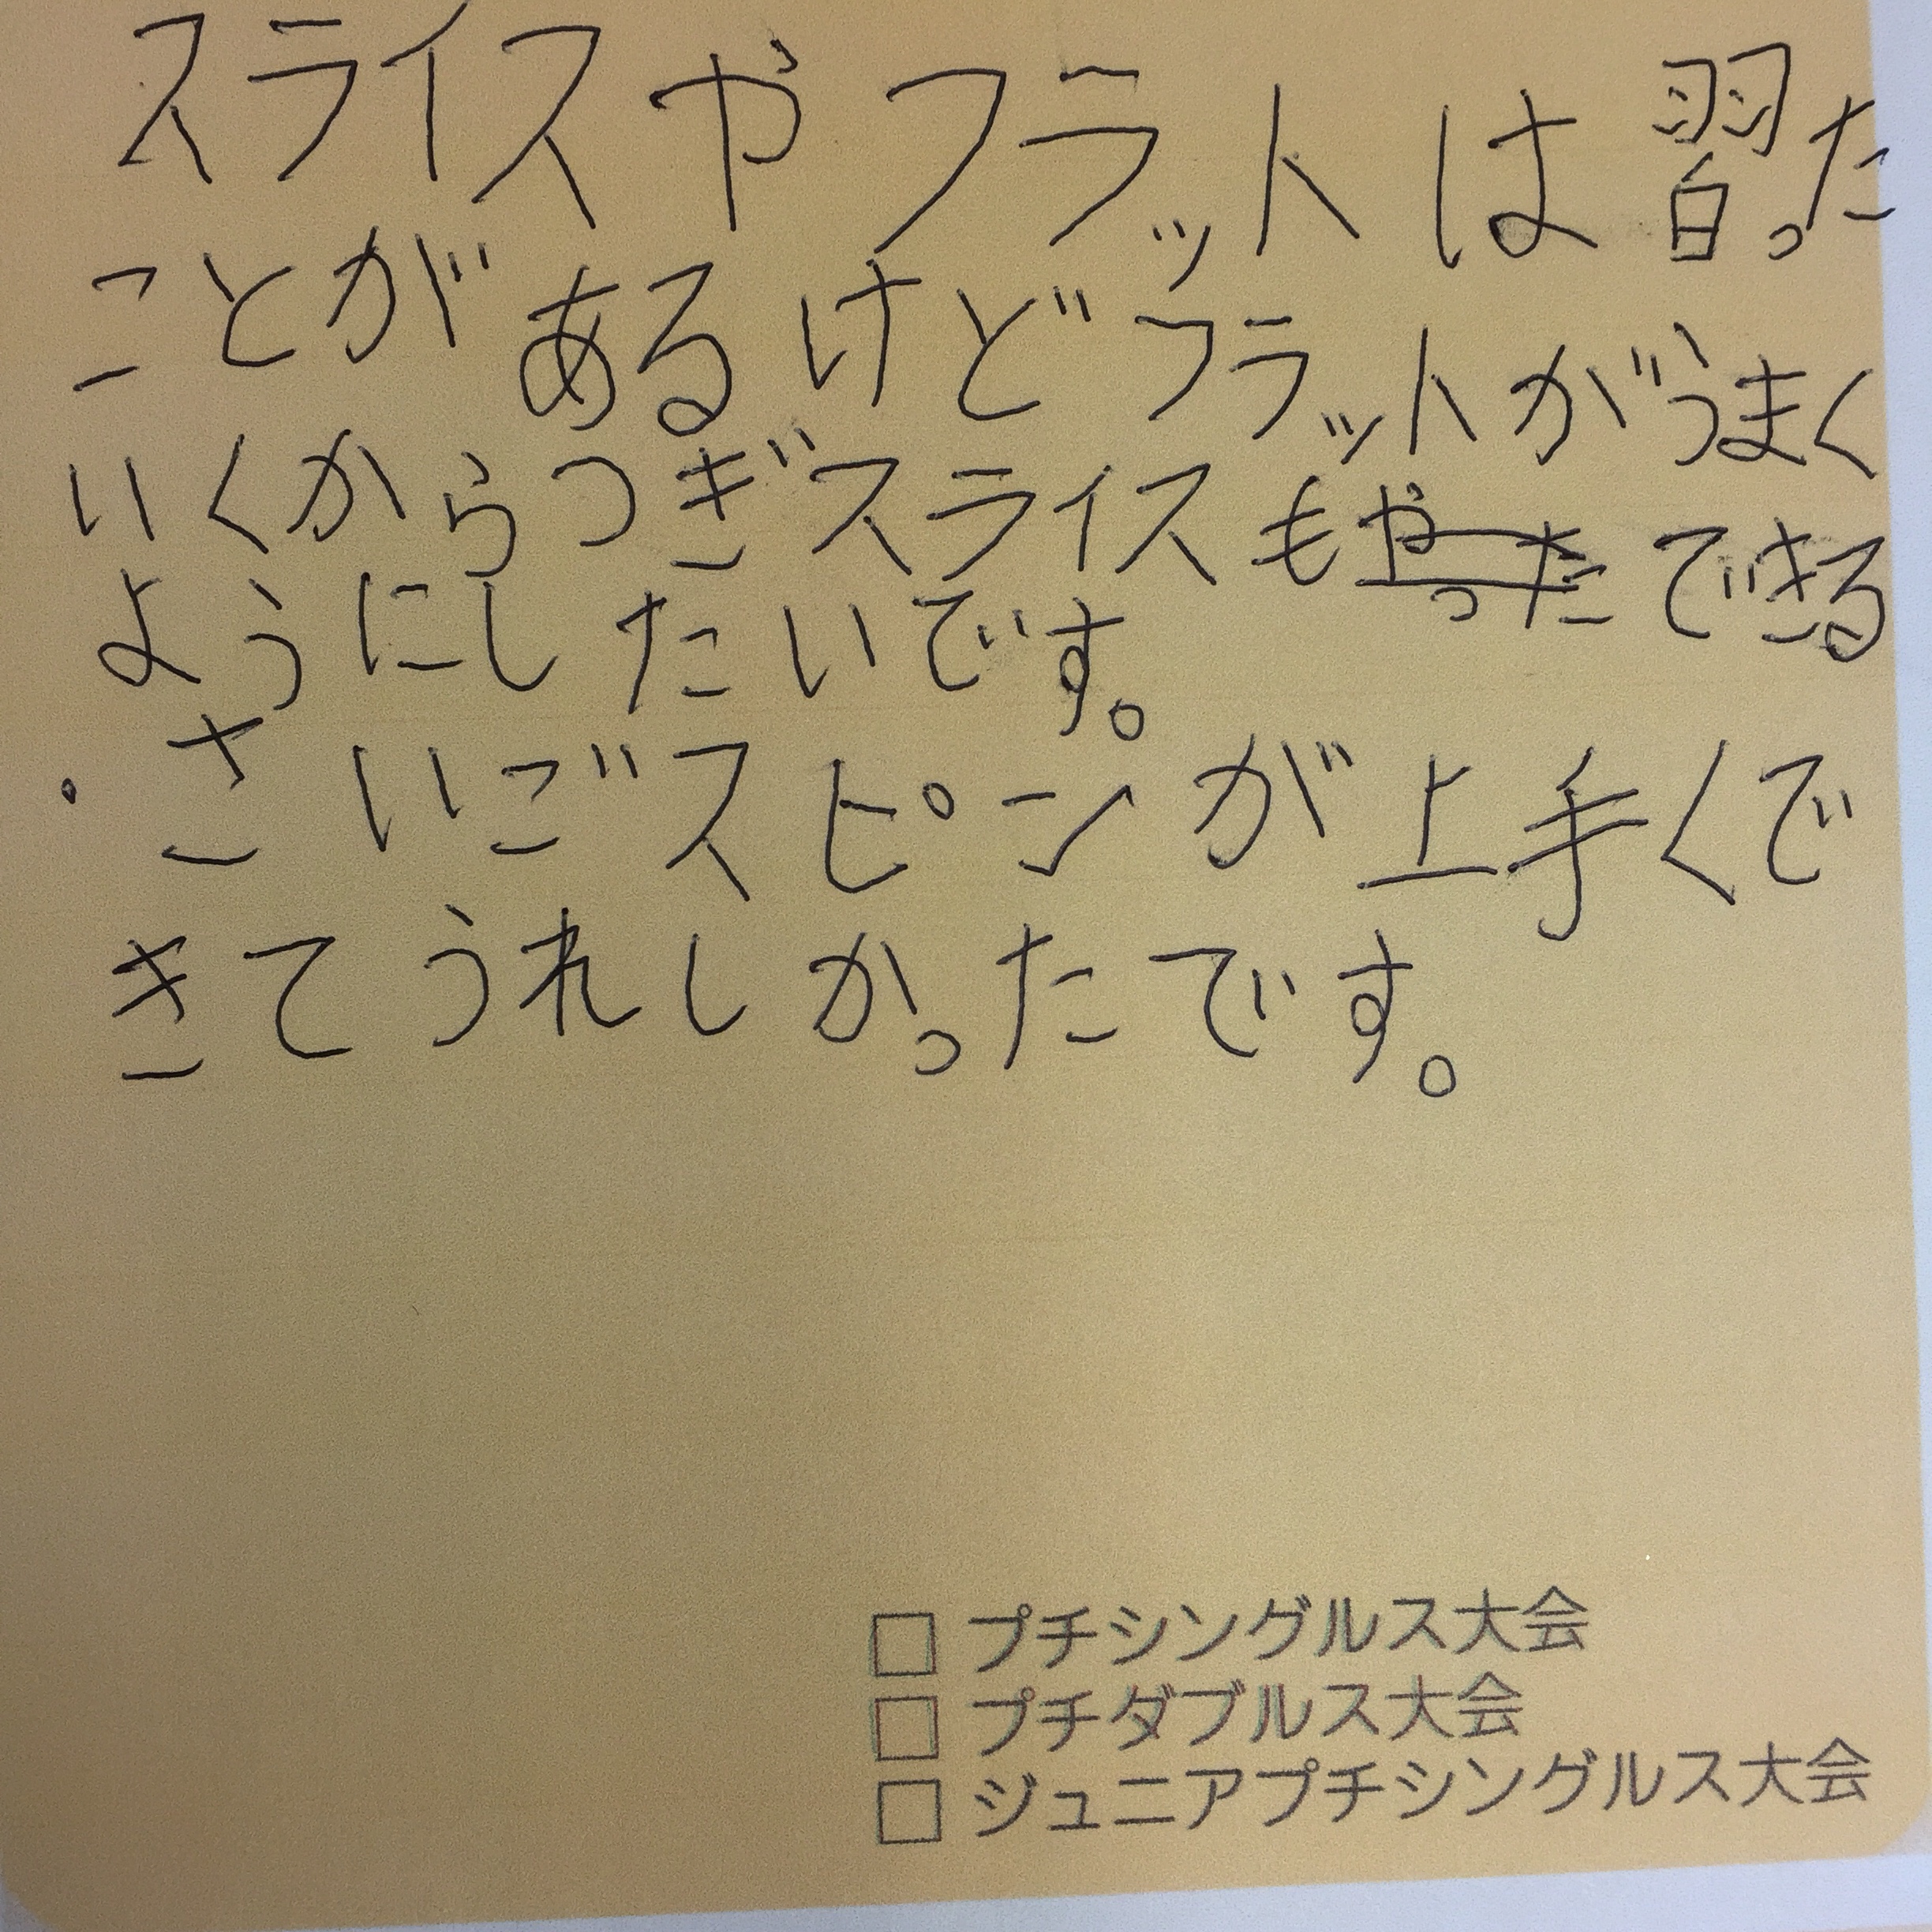 スライスやフラットは習った
ことがあるけどフラットがうまく
いくからつぎスライスもやったできる
ようにしたいです。
・さいごスピンが上手くで
きてうれしかったです。
□ プチシングルス大会
□ プチダブルス大会
□ ジュニアプチシングルス大会